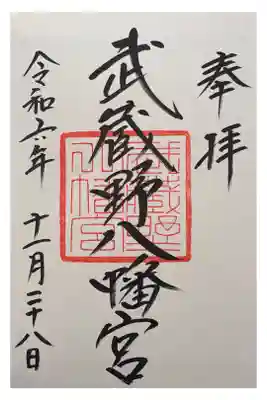 奉拝
武蔵野八幡宮
武蔵野八幡宮
令和六年 十一月二十八日